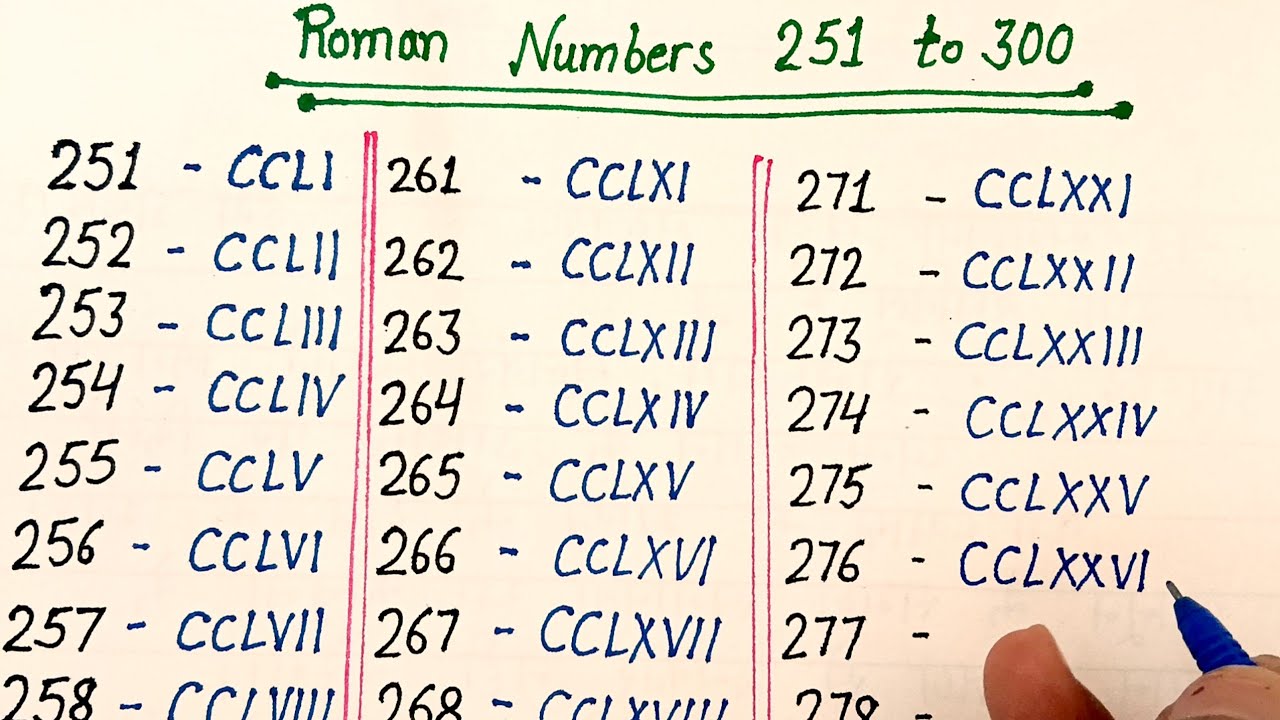 Roman Numbers 251 to 300
251 - CCLI
252 - CCLII
253 - CCLIII
254 - CCLIV
255 - CCLV
256 - CCLVI
257 - CCLVII
258 - CCLVIII
261 - CCLXI
262 - CCLXII
263 - CCLXIII
264 - CCLXIV
265 - CCLXV
266 - CCLXVI
267 - CCLXVII
268 - CCLXVIII
271 - CCLXXI
272 - CCLXXII
273 - CCLXXIII
274 - CCLXXIV
275 - CCLXXV
276 - CCLXXVI
277 -
278 -